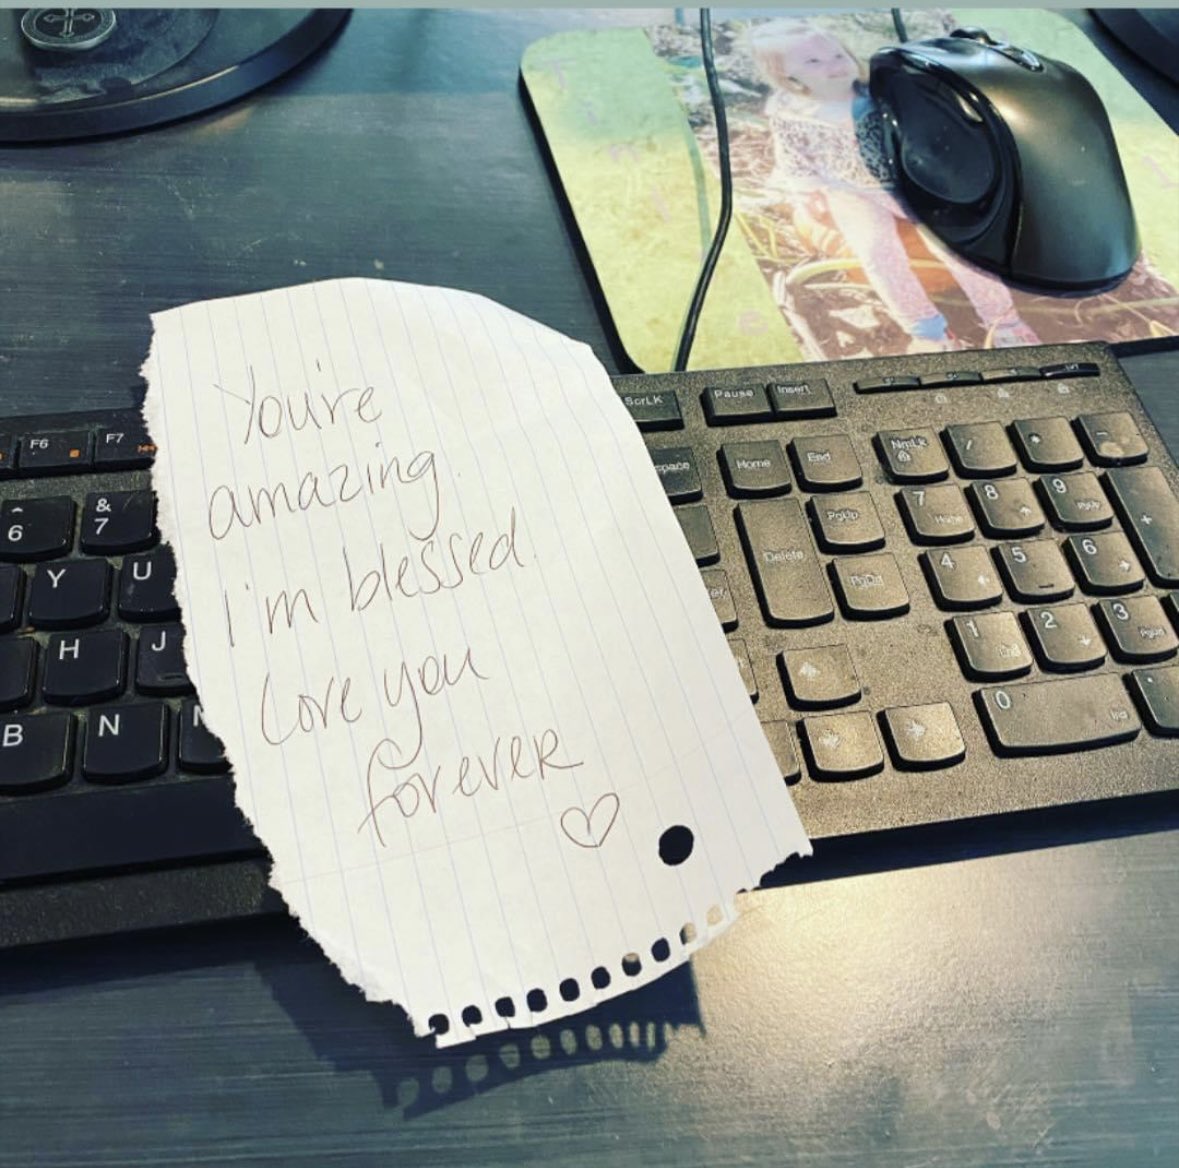 You're
amazing.
I'm blessed.
Love you
forever
ScrLK
Pause
Insert
F6
F7
^
6
&
7
Y
U
H
J
B
N
Home
End
PgUp
Delete
PgDn
NmLk
/
*
-
7
Home
8
9
PgUp
+
4
5
6
1
End
2
3
PgDn
0
Ins
.